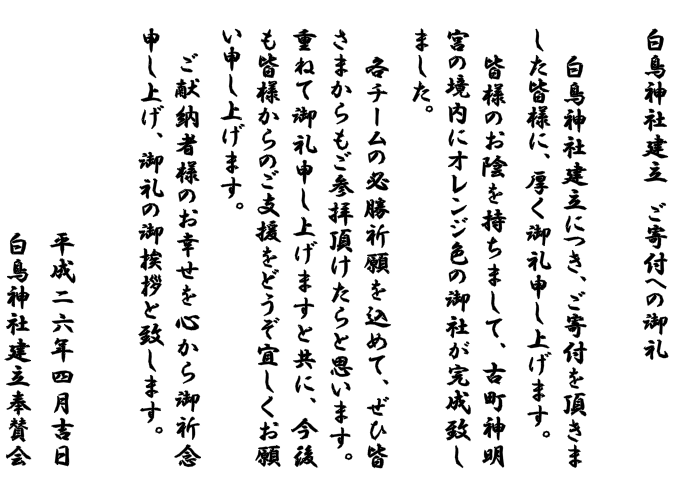 白鳥神社建立　ご寄付への御礼
白鳥神社建立につき、ご寄付を頂きま
した皆様に、厚く御礼申し上げます。
皆様のお陰を持ちまして、古町神明
宮の境内にオレンジ色の御社が完成致し
ました。
各チームの必勝祈願を込めて、ぜひ皆
さまからもご参拝頂けたらと思います。
重ねて御礼申し上げますと共に、今後
も皆様からのご支援をどうぞ宜しくお願
い申し上げます。
ご献納者様のお幸せを心から御祈念
申し上げ、御礼の御挨拶と致します。
平成二六年四月吉日
白鳥神社建立奉賛会